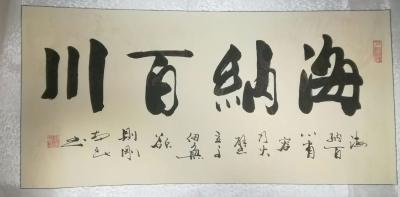 海納百川
海
納百
川有
容
乃大
壁
立千
仞無
欲
則剛
书